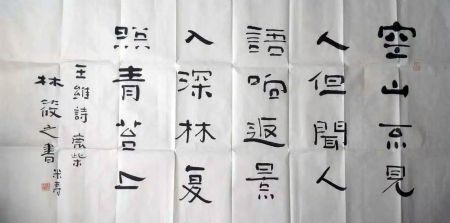 空山不見
人但聞人
語响返景
入深林复
照青苔上
王維詩鹿柴 米寿
林筱之書